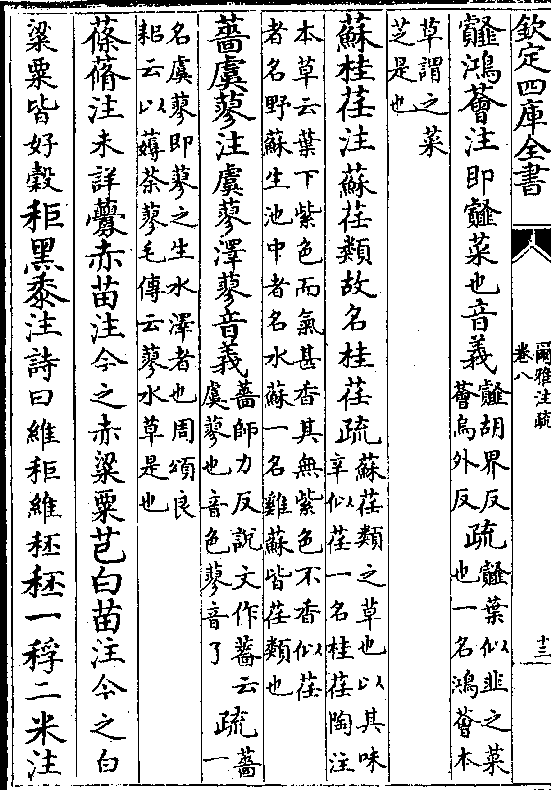 欽定四庫全書
爾雅注疏
卷八
十三
䪥鴻薈注即䪥菜也音義䪥胡界反
薈烏外反疏䪥葉似韭之菜
也一名鴻薈本
草謂之菜
芝是也
蘇桂荏注蘇荏類故名桂荏疏蘇荏類之草也以其味
辛似荏一名桂荏陶注
本草云葉下紫色而氣甚香其無紫色不香似荏
者名野蘇生池中者名水蘇一名雞蘇皆荏類也
薔虞蓼注虞蓼澤蓼音義薔師力反說文作薔云
虞蓼也音色蓼音了疏薔一
名虞蓼即蓼之生水澤者也周頌良
耜云以薅荼蓼毛傳云蓼水草是也
蓧蓨注未詳虋赤苗注今之赤粱粟芑白苗注今之白
粱粟皆好穀秬黑黍注詩曰維秬維秠秠一稃二米注